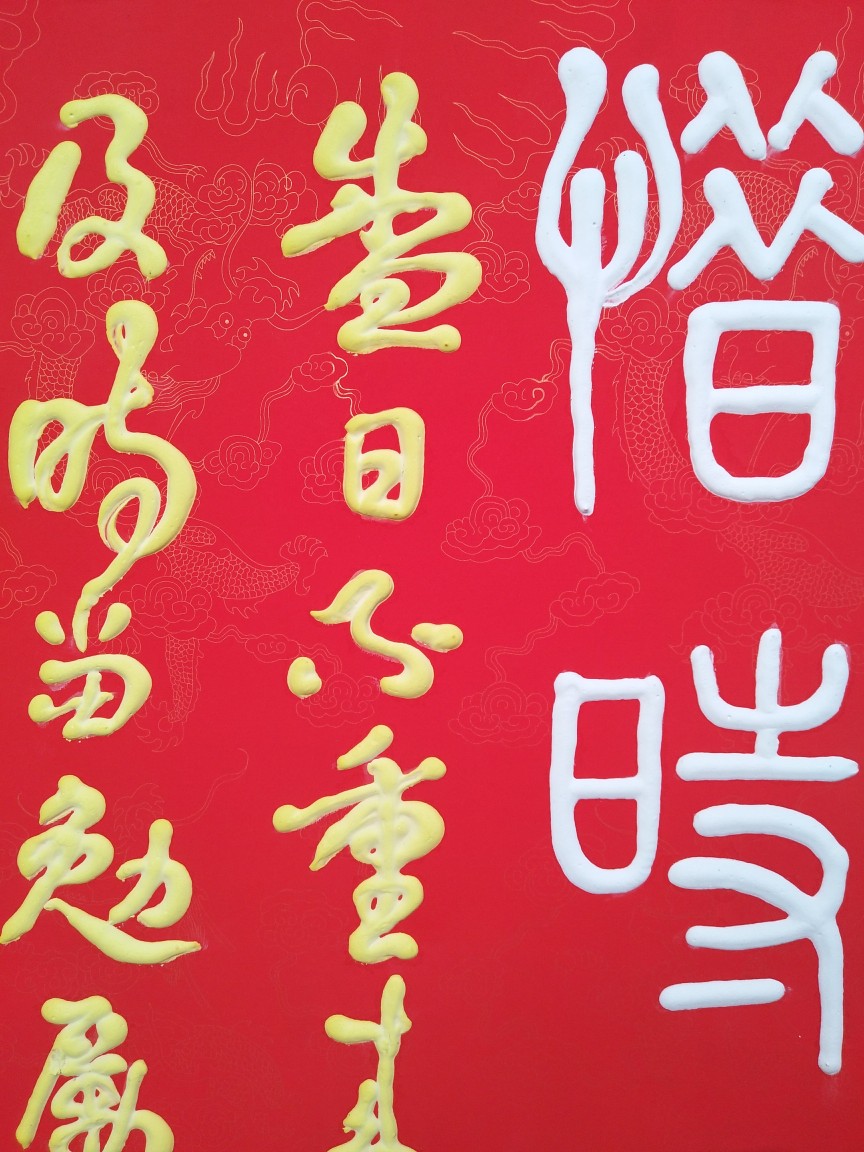 惜時
日不重来
及時當勉勵